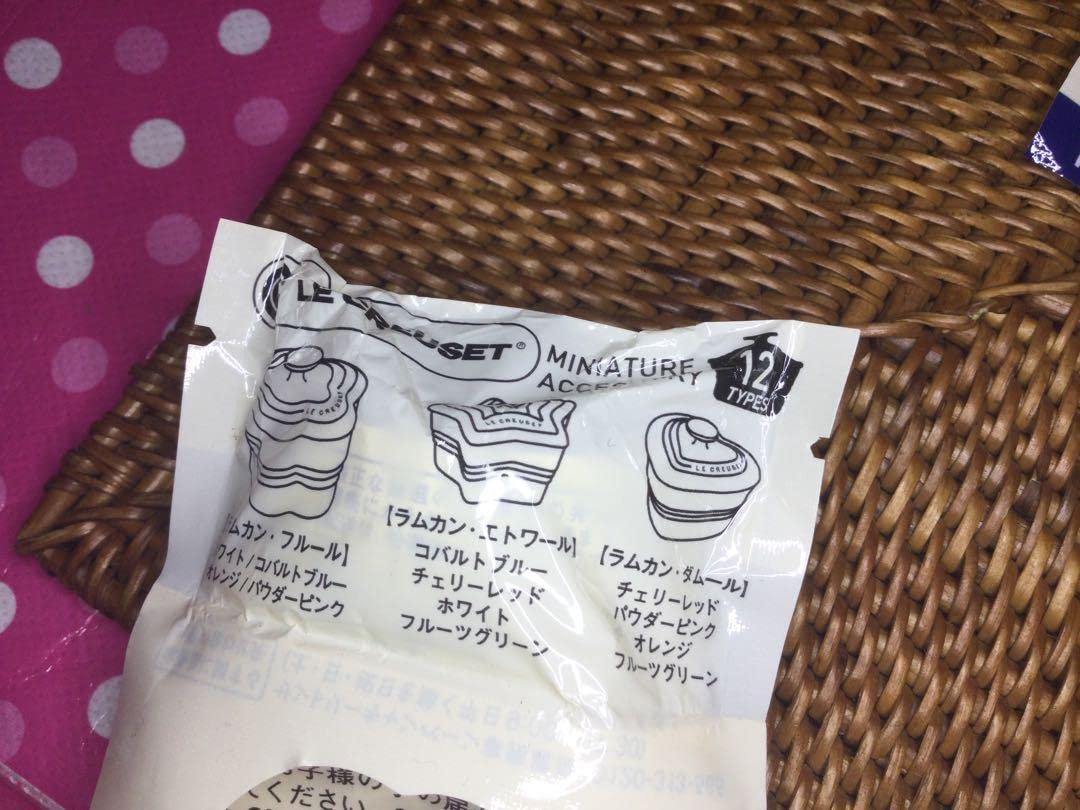 LE CREUSET®
MINIATURE
ACCESSORY
12
TYPES
LE CREUSET
LE CREUSET
LE CREUSET
ムカン・フルール】
ワイト/コバルトブルー
オレンジ/パウダーピンク
【ラムカン・エトワール】
コバルトブルー
チェリーレッド
ホワイト
フルーツグリーン
【ラムカン・ダムール】
チェリーレッド
パウダーピンク
オレンジ
フルーツグリーン
子様の
ください